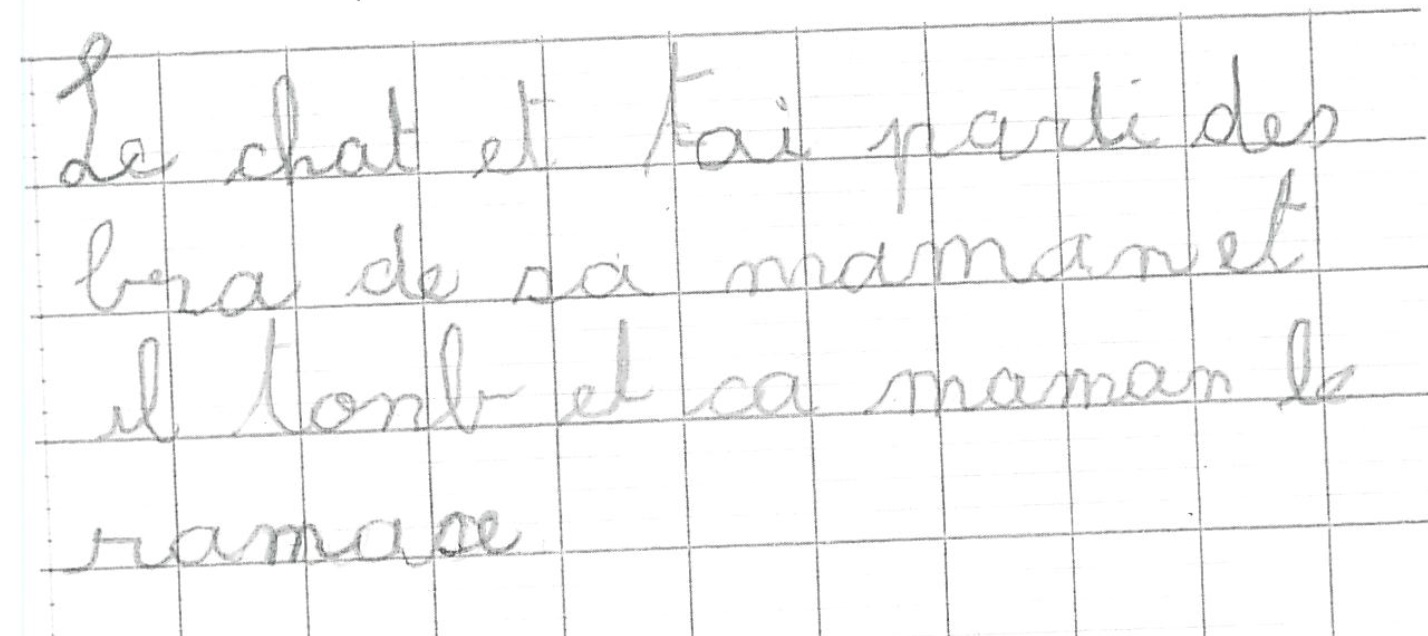 Le chat et tai parti des
bra de sa maman et
il tonb et ca maman le
ramase